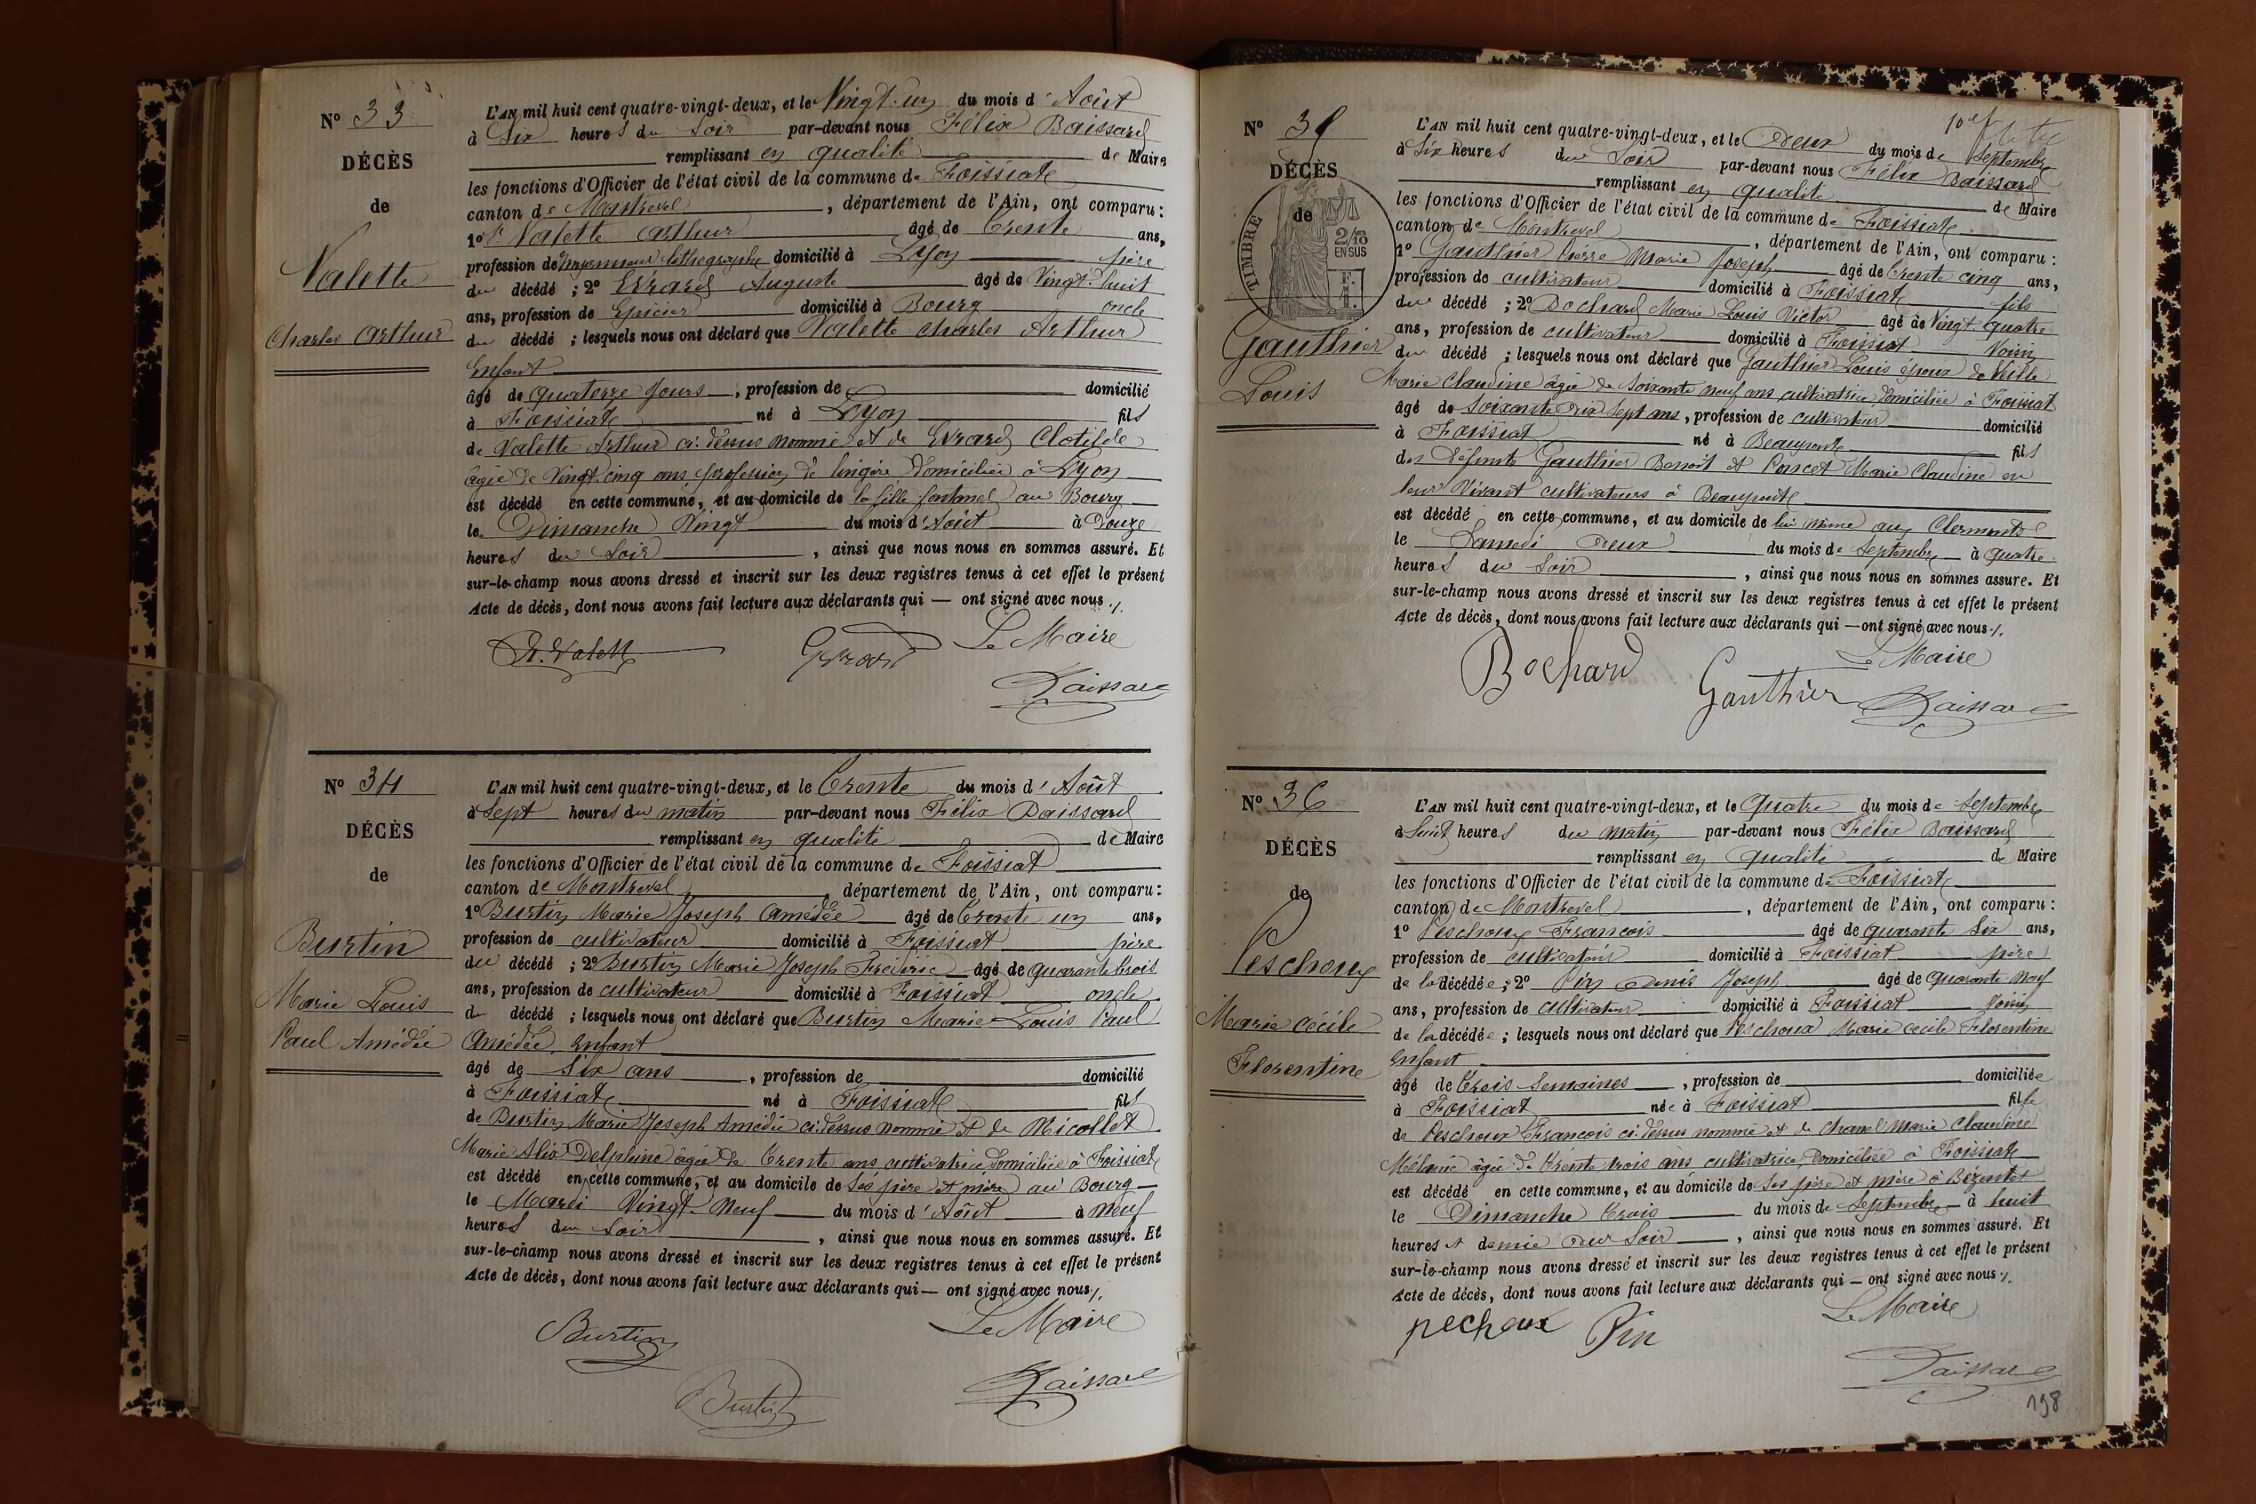 N° 33
DÉCÈS
de
Valette
Charles Arthur
L'AN mil huit cent quatre-vingt-deux, et le Vingt-un du mois d'Août
à Six heures du Soir par-devant nous Félix Baissard
remplissant en qualité de Maire
les fonctions d'Officier de l'état civil de la commune de Foissiat
canton de Montrevel, département de l'Ain, ont comparu:
1° Valette Arthur âgé de trente ans,
profession de lithographe domicilié à Lyon père
du décédé; 2° Evrard Auguste âgé de Vingt-huit
ans, profession de Epicier domicilié à Bourg oncle
du décédé; lesquels nous ont déclaré que Valette Charles Arthur
Enfant
âgé de quatorze jours, profession de domicilié
à Foissiat né à Lyon fils
de Valette Arthur ci-dessus nommé et de Evrard Clotilde
âgée de Vingt-cinq ans profession de lingère domiciliée à Lyon
est décédé en cette commune, et au domicile de la fille au Bourg
le Dimanche Vingt du mois d'Août à Douze
heures du Soir, ainsi que nous nous en sommes assuré. Et
sur-le-champ nous avons dressé et inscrit sur les deux registres tenus à cet effet le présent
Acte de décès, dont nous avons fait lecture aux déclarants qui — ont signé avec nous ./.
Le Maire
A. Valette Evrard
Baissard
N° 34
DÉCÈS
de
Burtin
Marie Louis
Paul Amédée
L'AN mil huit cent quatre-vingt-deux, et le trente du mois d'Août
à Sept heures du matin par-devant nous Félix Baissard
remplissant en qualité de Maire
les fonctions d'Officier de l'état civil de la commune de Foissiat
canton de Montrevel, département de l'Ain, ont comparu:
1° Burtin Marie Joseph Amédée âgé de trente un ans,
profession de cultivateur domicilié à Foissiat père
du décédé; 2° Burtin Marie Joseph Frédéric âgé de quarante trois
ans, profession de cultivateur domicilié à Foissiat oncle
du décédé; lesquels nous ont déclaré que Burtin Marie Louis Paul
Amédée Enfant
âgé de Six ans, profession de domicilié
à Foissiat né à Foissiat fils
de Burtin Marie Joseph Amédée ci-dessus nommé et de Micollet
Marie Alix Delphine âgée de trente ans cultivatrice domiciliée à Foissiat
est décédé en cette commune, et au domicile de Ses père et mère au Bourg
le Mardi Vingt-Neuf du mois d'Août à Neuf
heures du Soir, ainsi que nous nous en sommes assuré. Et
sur-le-champ nous avons dressé et inscrit sur les deux registres tenus à cet effet le présent
Acte de décès, dont nous avons fait lecture aux déclarants qui — ont signé avec nous ./.
Burtin Le Maire
Burtin Baissard
N° 35
DÉCÈS
de
TIMBRE
2/10
EN SUS
Gauthier
Louis
L'AN mil huit cent quatre-vingt-deux, et le Deux du mois de Septembre
à Six heures du Soir par-devant nous Félix Baissard
remplissant en qualité de Maire
les fonctions d'Officier de l'état civil de la commune de Foissiat
canton de Montrevel, département de l'Ain, ont comparu:
1° Gauthier Pierre Marie Joseph âgé de trente cinq ans,
profession de cultivateur domicilié à Foissiat fils
du décédé; 2° Bochard Marie Louis Victor âgé de Vingt-quatre
ans, profession de cultivateur domicilié à Foissiat Voisin
du décédé; lesquels nous ont déclaré que Gauthier Louis époux de
Marie Claudine âgée de Soixante neuf ans cultivatrice domiciliée à Foissiat
âgé de Soixante dix Sept ans, profession de cultivateur domicilié
à Foissiat né à Beaupont fils
des défunts Gauthier Benoit et Poncet Marie Claudine en
leur Vivant cultivateurs à Beaupont
est décédé en cette commune, et au domicile de lui même aux Clermonts
le Samedi Deux du mois de Septembre à quatre
heures du Soir, ainsi que nous nous en sommes assuré. Et
sur-le-champ nous avons dressé et inscrit sur les deux registres tenus à cet effet le présent
Acte de décès, dont nous avons fait lecture aux déclarants qui — ont signé avec nous ./.
Bochard Le Maire
Gauthier Baissard
N° 36
DÉCÈS
de
Peschoux
Marie Cécile
Florentine
L'AN mil huit cent quatre-vingt-deux, et le Quatre du mois de Septembre
à huit heures du matin par-devant nous Félix Baissard
remplissant en qualité de Maire
les fonctions d'Officier de l'état civil de la commune de Foissiat
canton de Montrevel, département de l'Ain, ont comparu:
1° Peschoux François âgé de quarante Six ans,
profession de cultivateur domicilié à Foissiat père
de la décédée; 2° Pin Denis Joseph âgé de quarante Neuf
ans, profession de cultivateur domicilié à Foissiat Voisin
de la décédée; lesquels nous ont déclaré que Peschoux Marie Cécile Florentine
Enfant
âgé de trois Semaines, profession de domiciliée
à Foissiat née à Foissiat fille
de Peschoux François ci-dessus nommé et de Chanel Marie Claudine
Mélanie âgée de trente trois ans cultivatrice domiciliée à Foissiat
est décédé en cette commune, et au domicile de Ses père et mère à Bézentet
le Dimanche trois du mois de Septembre à huit
heures et demie du Soir, ainsi que nous nous en sommes assuré. Et
sur-le-champ nous avons dressé et inscrit sur les deux registres tenus à cet effet le présent
Acte de décès, dont nous avons fait lecture aux déclarants qui — ont signé avec nous ./.
pechoux Pin Le Maire
Baissard
198